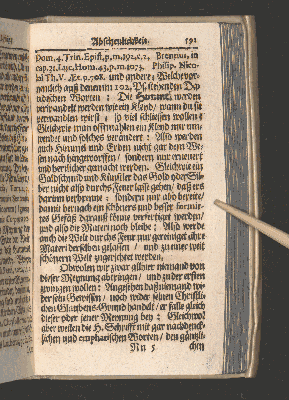 Abscheulichkeit. 191
Dom. 4. Trin. Epist. p. m. 192. c. 2. Brentius, in
cap. 21. Luc. Hom. 43. p. m. 1073. Philip. Nico-
lai Th. V. Æt. p. 508. und andere; Welche vor-
nemlich auß denen im 102. Ps. stehenden Da-
vidischen Worten: Die Himmel werden
verwandelt werden wie ein Kleid/ wann du sie
verwandlen wirst; so viel schliessen wollen:
Gleichwie man offtmahlen ein Kleid nur um-
wende und solches verändert: Also werden
auch Himmel und Erden nicht gar dem We-
sen nach hingeworffen/ sondern nur erneuert
und herrlicher gemacht werden. Gleichwie ein
Goldschmid und Künstler das Gold oder Sil-
ber nicht also durchs Feuer lasse gehen/ daß es
darinn verbrenne; sondern nur also bereite/
damit hernach ein schöners und besser formir-
tes Gefäß daraus könne verfertiget werden/
und also die Materi noch bleibe; Also werde
auch die Welt durchs Feur nur gereiniget/ ihre
Materi derselben gelassen/ und zu einer weit
schönern Welt zugerichtet werden.
Obwolen wir zwar allhier niemand von
dieser Meynung abbringen/ und zu der ersten
zwingen wollen; Angesehen daß niemand wi-
der sein Gewissen/ noch wider seinen Christli-
chen Glaubens-Grund handelt/ er falle gleich
dieser oder jener Meynung bey: Gleichwol
aber weilen die H. Schrifft mit gar nachdrück-
lichen und emphatischen Worten/ den gäntzli-
Nn 5 chen